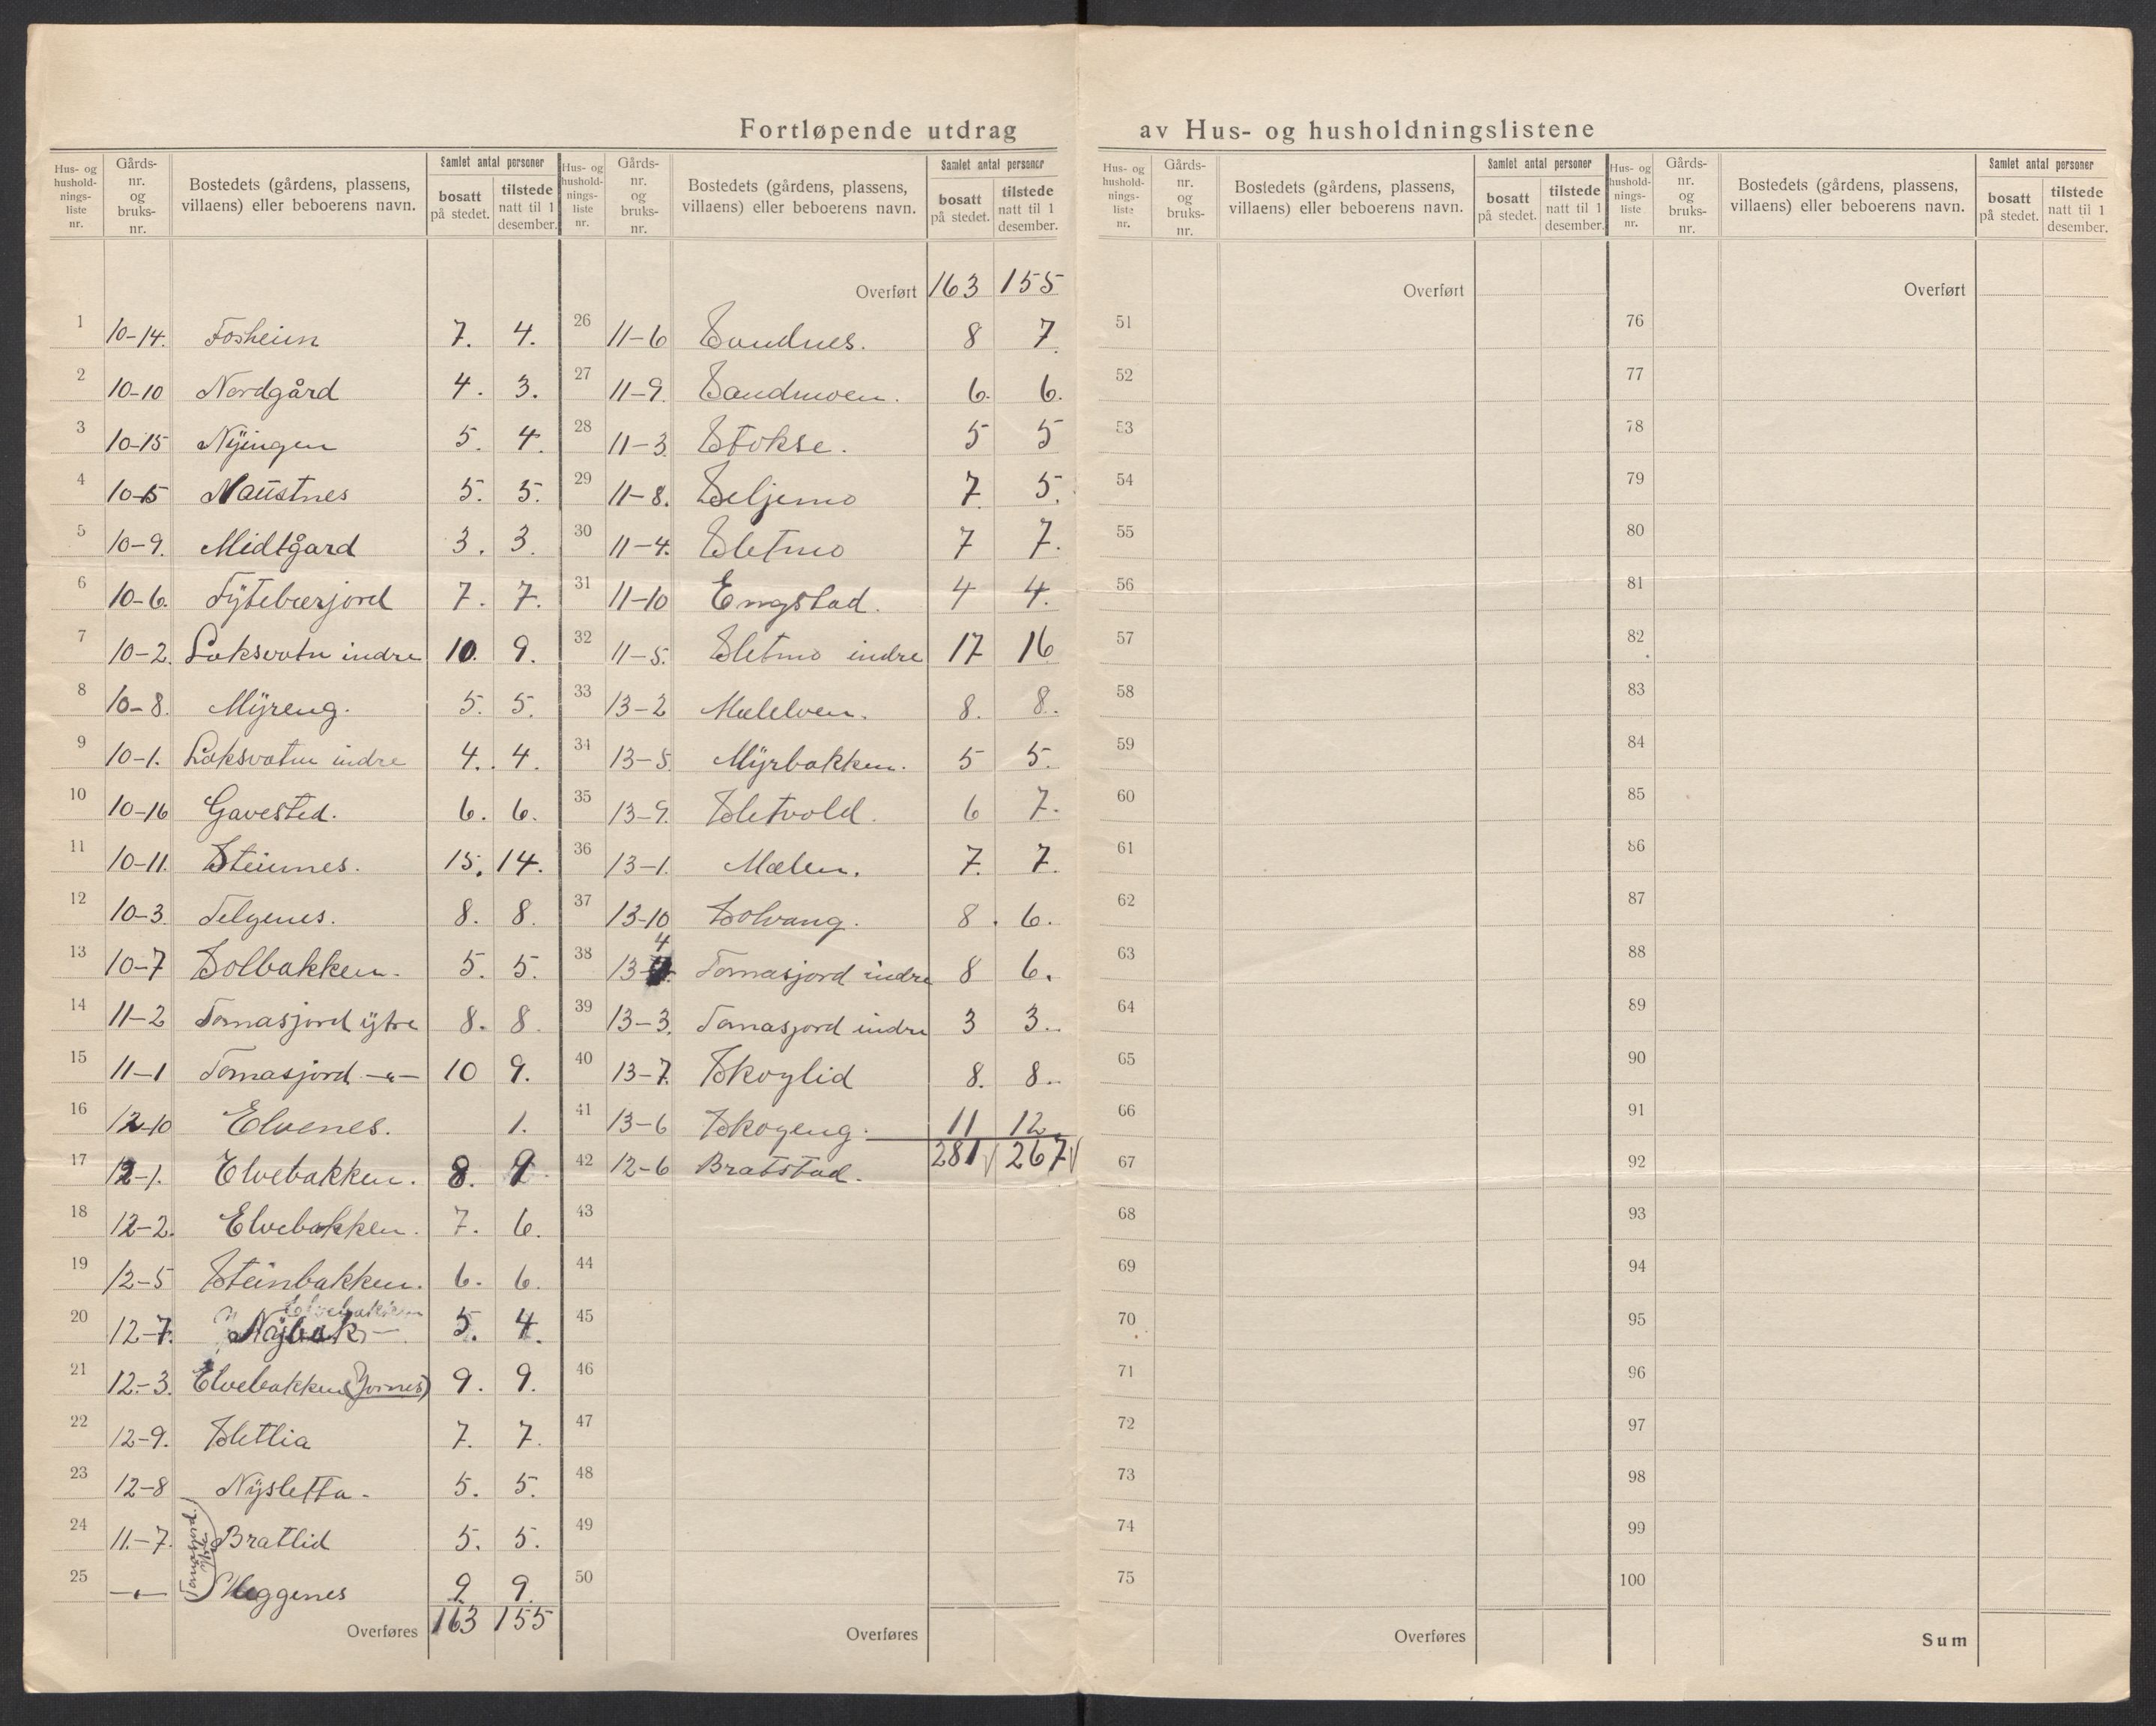 Fortløpende utdrag av Hus- og husholdningslistene
Hus- og husholdnings-liste nr. | Gårds-nr. og bruks-nr. | Bostedets (gårdens, plassens, villaens) eller beboerens navn. | Samlet antal personer | bosatt på stedet. | tilstede natt til 1 desember.
1 10-14. Fosheim 7. 4.
2 10-10 Nordgård 4. 3.
3 10-15 Nyingen 5. 4.
4 10-5 Naustnes 5. 5.
5 10-9. Midtgard 3. 3.
6 10-6. Tytebærjord 7. 7.
7 10-2. Laksvatn indre 10. 9.
8 10-8. Myreng. 5. 5.
9 10-1. Laksvatn indre 4. 4.
10 10-16 Gavested. 6. 6.
11 10-11. Steinnes. 15. 14.
12 10-3. Telgenes. 8. 8.
13 10-7 Solbakken. 5. 5.
14 11-2 Tomasjord ytre 8. 8.
15 11-1 Tomasjord -"- 10 9.
16 12-10 Elvenes. 1.
17 12-1. Elvebakken. 8. 9.
18 12-2. Elvebakken. 7. 6.
19 12-5 Steinbakken. 6. 6.
Elvebakken
20 12-7. Nybak 5. 4.
21 12-3. Elvebakken (Jornes) 9. 9.
22 12-9. Slettlia 7. 7.
23 12-8 Nysletta. 5. 5.
24 11-7. Bratlid 5. 5.
25 -"- Skeggenes 9. 9.
Tomasjord ytre
Overføres 163 155
Hus- og husholdnings-liste nr. | Gårds-nr. og bruks-nr. | Bostedets (gårdens, plassens, villaens) eller beboerens navn. | Samlet antal personer | bosatt på stedet. | tilstede natt til 1 desember.
Overført 163 155
26 11-6 Sandnes. 8 7.
27 11-9. Sandmoen. 6. 6.
28 11-3. Stokse. 5 5
29 11-8. Seljemo 7. 5.
30 11-4. Sletmo 7 7.
31 11-10 Engstad. 4 4.
32 11-5. Sletmo indre 17 16
33 13-2 Mælelven. 8. 8.
34 13-5. Myrbakken. 5 5.
35 13-9. Sletvold. 6 7.
36 13-1. Mælen. 7. 7.
37 13-10 Solvang. 8. 6.
38 13-4 Tomasjord indre 8 6.
39 13-3. Tomasjord indre 3 3.
40 13-7. Skoglid 8. 8.
41 13-6 Skogeng. 11 12.
42 12-6 Bratstad. 281 267
43
44
45
46
47
48
49
50
Overføres
Hus- og husholdnings-liste nr. | Gårds-nr. og bruks-nr. | Bostedets (gårdens, plassens, villaens) eller beboerens navn. | Samlet antal personer | bosatt på stedet. | tilstede natt til 1 desember.
Overført
51
52
53
54
55
56
57
58
59
60
61
62
63
64
65
66
67
68
69
70
71
72
73
74
75
Overføres
Hus- og husholdnings-liste nr. | Gårds-nr. og bruks-nr. | Bostedets (gårdens, plassens, villaens) eller beboerens navn. | Samlet antal personer | bosatt på stedet. | tilstede natt til 1 desember.
Overført
76
77
78
79
80
81
82
83
84
85
86
87
88
89
90
91
92
93
94
95
96
97
98
99
100
Sum